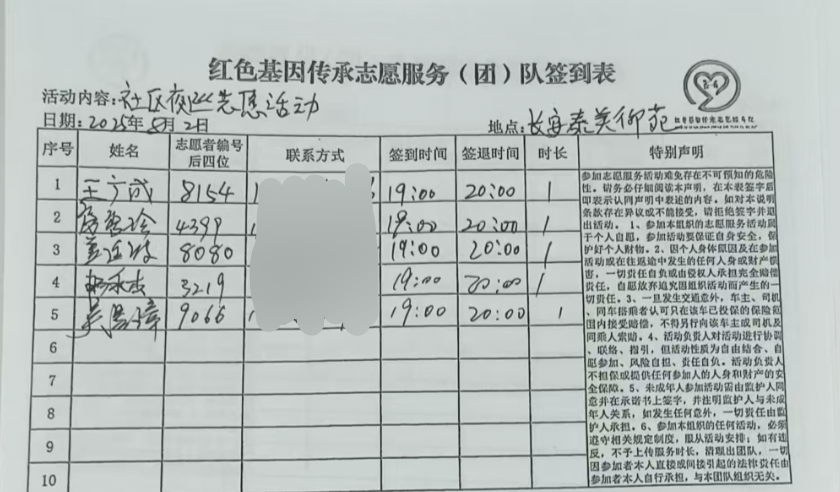 红色基因传承志愿服务（团）队签到表
活动内容：社区夜巡志愿活动
日期：2025年8月2日
地点：长安泰美御苑
序号 姓名 志愿者编号后四位 联系方式 签到时间 签退时间 时长 特别声明
1 王广成 8154 19:00 20:00 1
2 4399 19:00 20:00 1
3 8080 19:00 20:00 1
4 3219 19:00 20:00 1
5 9066 19:00 20:00 1
6
7
8
9
10
参加志愿服务活动难免存在不可预知的危险
性。请务必仔细阅读本声明，在本表签字后
即表示认同声明中表述的内容。如对本说明
条款存在异议或不能接受，请拒绝签字并退
出活动。1、参加本组织的志愿服务活动属
于个人自愿，参加活动要保证自身安全，保
护好个人财物。2、因个人身体原因及在参
加活动或在往返途中发生的任何人身或财产损
害，一切责任自负或由侵权人承担完全赔偿
责任，自愿放弃追究因组织活动而产生的一
切责任。3、一旦发生交通意外，车主、司机
、同车搭乘者认可只在该车已投保的保险范
围内接受赔偿，不得另行向该车主或司机及
同乘人索赔。4、活动负责人对活动进行协调
、联络、指引，但活动性质为自由结合、自
愿参加、风险自担、责任自负。活动负责人
不担保或提供任何参加人的人身和财产的安
全保障。5、未成年人参加活动需由监护人同
意并在承诺书上签字，并注明监护人与未成
年人关系，如发生任何意外，一切责任由监
护人承担。6、参加本组织的任何活动，必须
遵守相关规定制度，服从活动安排；如有违
反，不予上传服务时长，清理出团队，一切
因参加者本人直接或间接引起的法律责任由
参加者本人自行承担，与本团队组织无关。